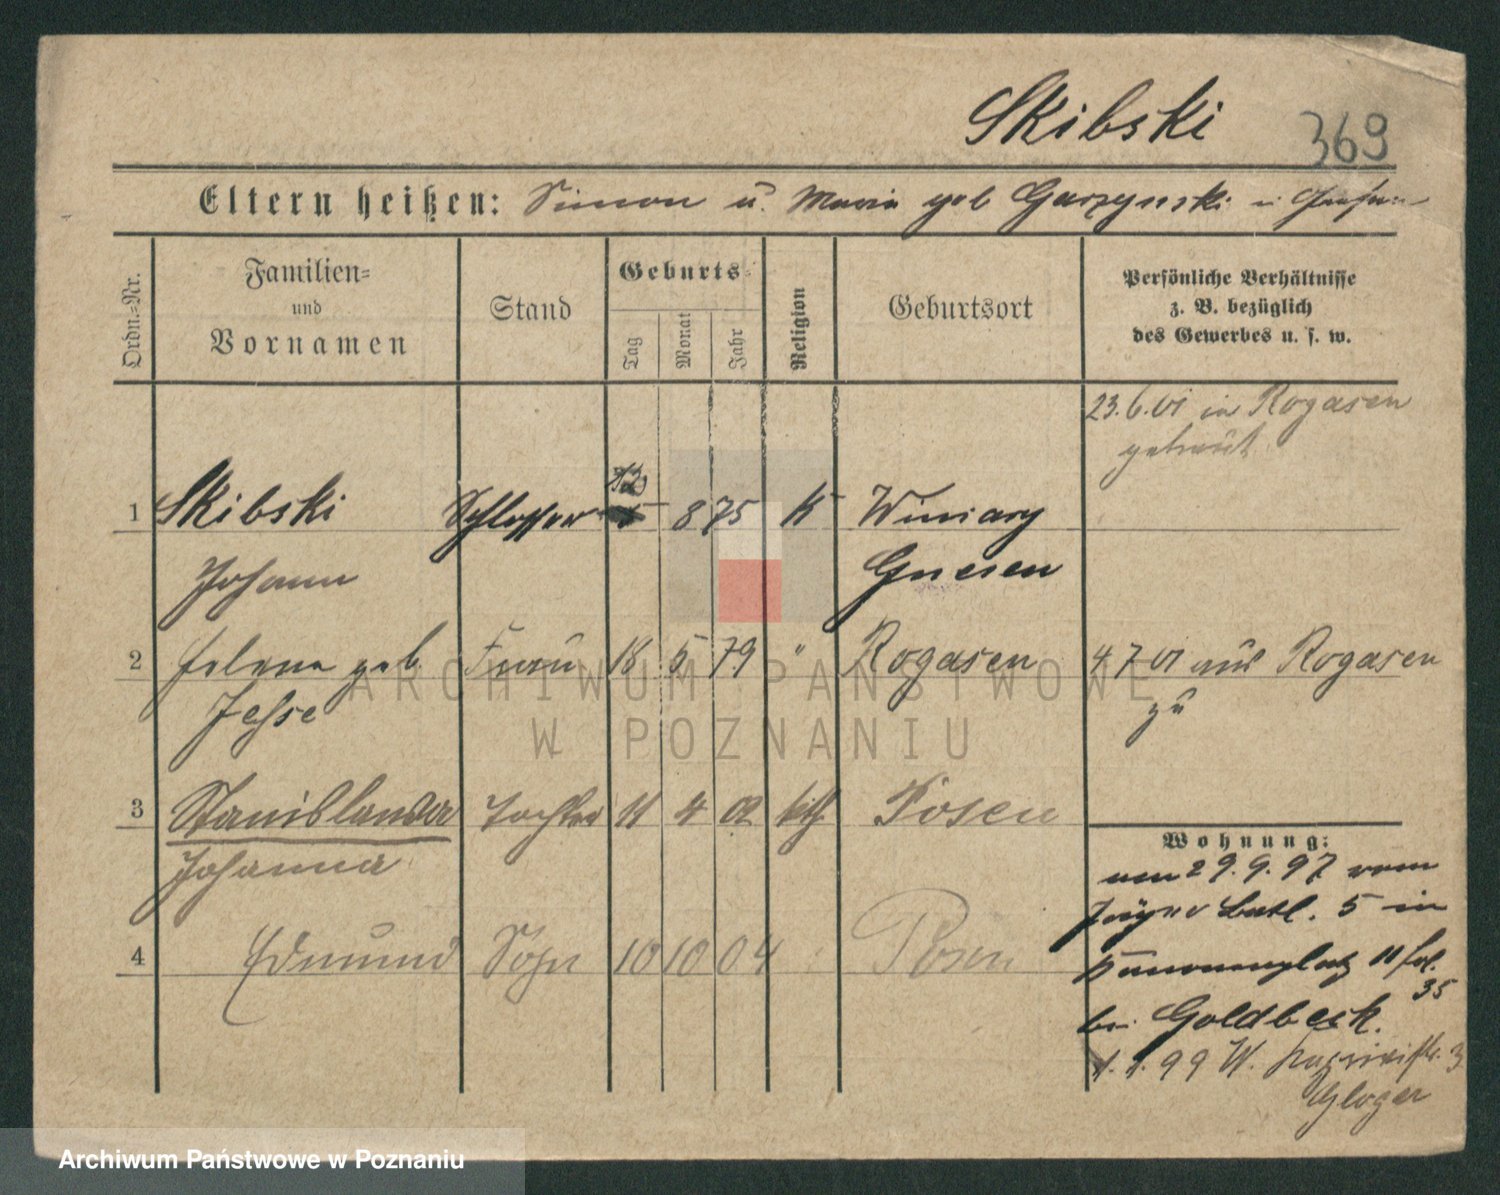 Skibski 369
Eltern heißen: Simon u. Maria geb Garzynski
Ordn.=Nr.
Familien=
und
Vornamen
Stand
Geburts=
Tag
Monat
Jahr
Religion
Geburtsort
Persönliche Verhältnisse
z. B. bezüglich
des Gewerbes u. s. w.
23.6.01 in Rogasen
getraut
1 Skibski Schlosser 8 75 k Winiary
Johann Gnesen
2 Helene geb. Frau 18 5 79 " Rogasen 4.7 01 aus Rogasen
Jesse zu
3 Stanislawa Tochter 11 4 02 kth Posen
Johanna
4 Edmund Sohn 10 10 04 Posen
Wohnung:
am 29.9.97 vom
Jäger Batl. 5 in
Kanonenplatz 11
35
bei Goldbeck.
1.1.99 W. 3
Gloger
ARCHIWUM PAŃSTWOWE
W POZNANIU
Archiwum Państwowe w Poznaniu